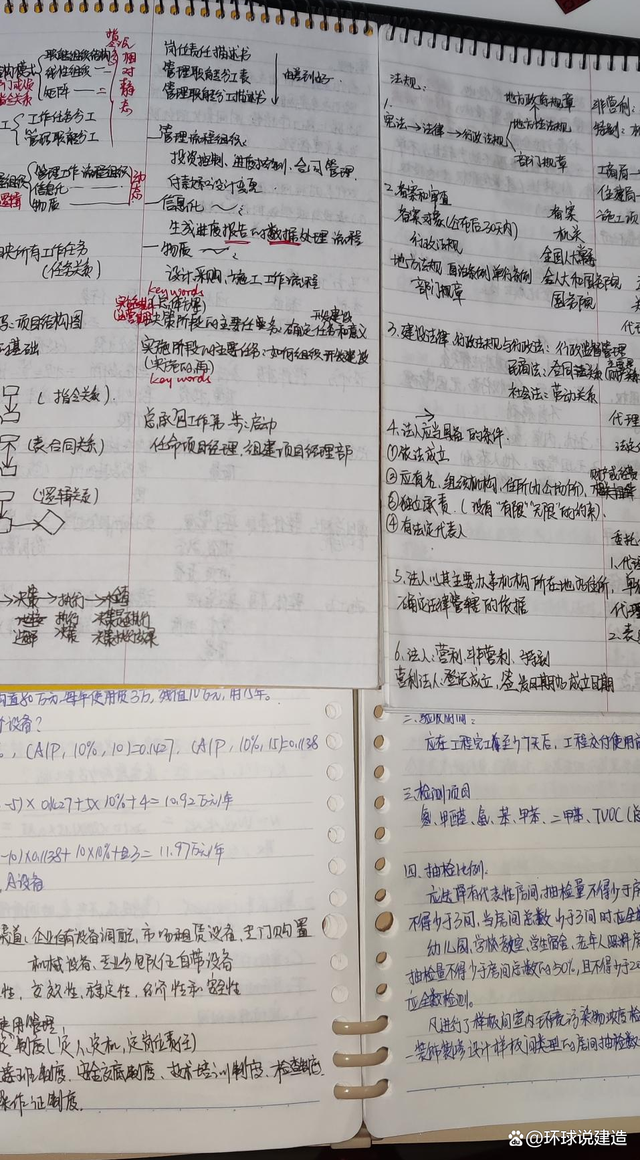 职能组织结构
线性组织
矩阵
工作任务分工
管理职能分工
管理工作流程组织
信息化
物质
相对静态
动态
映所有工作任务
(任务关系)
项目结构图
基础
(指令关系)
(合同关系)
(逻辑关系)
决策→执行→检查
岗位责任描述书
管理职能分工表
管理职能分工描述书
由粗到细
管理流程组织:
投资控制、进度控制、合同管理
付款和设计变更
信息化
生成进度报告的数据处理流程
物质
设计、采购、施工工作流程
key words
决策阶段的主要任务:确定任务和意义
开发建设
实施阶段的主要任务:如何组织开发建设
key words
总承包工作第一步:启动
任命项目经理、组建项目经理部
法规:
1.
宪法→法律→行政法规
地方政府规章
地方性法规
部门规章
2.备案和审查
备案对象(公布后30天内)
备案
机关
行政法规
全国人大常委
地方法规 自治条例 单行条例 人大和国务院
部门规章 国务院
3.建设法律、行政法规与行政法:行政监督管理
民商法:合同关系
社会法:劳动关系
4.法人应当具备的条件.
①依法成立
②应有名、组织机构、住所
③独立承责.(没有“有限”“无限”的约束).
④有法定代表人
5.法人以其主要办事机构所在地为住所,
确定法律管辖的依据
6.法人:营利、非营利、特别
营利法人:登记成立,签发日期为成立日期
非营利:
特别:
工商局
住建局
施工项
代理
代理
委托
1.代理
代理
2.表
值80万元,每年使用费3万,残值10万元,用15年。
设备?
(A/P,10%,10)=0.1427,(A/P,10%,15)=0.1138
-5)×0.1627+5×10%+4=10.92万元/年
-10)×0.1138+10×10%+3=11.97万元/年
A设备
渠道、企业自有设备调配,市场租赁设备、专门购置
机械设备、专业分包队伍自带设备
性、高效性、稳定性、经济性和安全性
使用管理,
制度(定人、定机,定岗位责任)
接班制度、安全交底制度、技术培训制度、检查制度、
操作证制度.
二.验收时间:
应在工程完工后至少7天后,工程交付使用前
三.检测项目
氡、甲醛、氨、苯、甲苯、二甲苯、TVOC
四、抽检比例.
应选择有代表性房间,抽检量不得少于房
不得少于3间,当房间总数少于3间时应全数
幼儿园、学校教室、学生宿舍、老年人照料房
抽检量不得少于房间总数的50%,且不得少于20
应全数检测。
凡进行了样板间室内环境污染物浓度检
装饰装修设计样板间类型的房间抽检数
@环球说建造